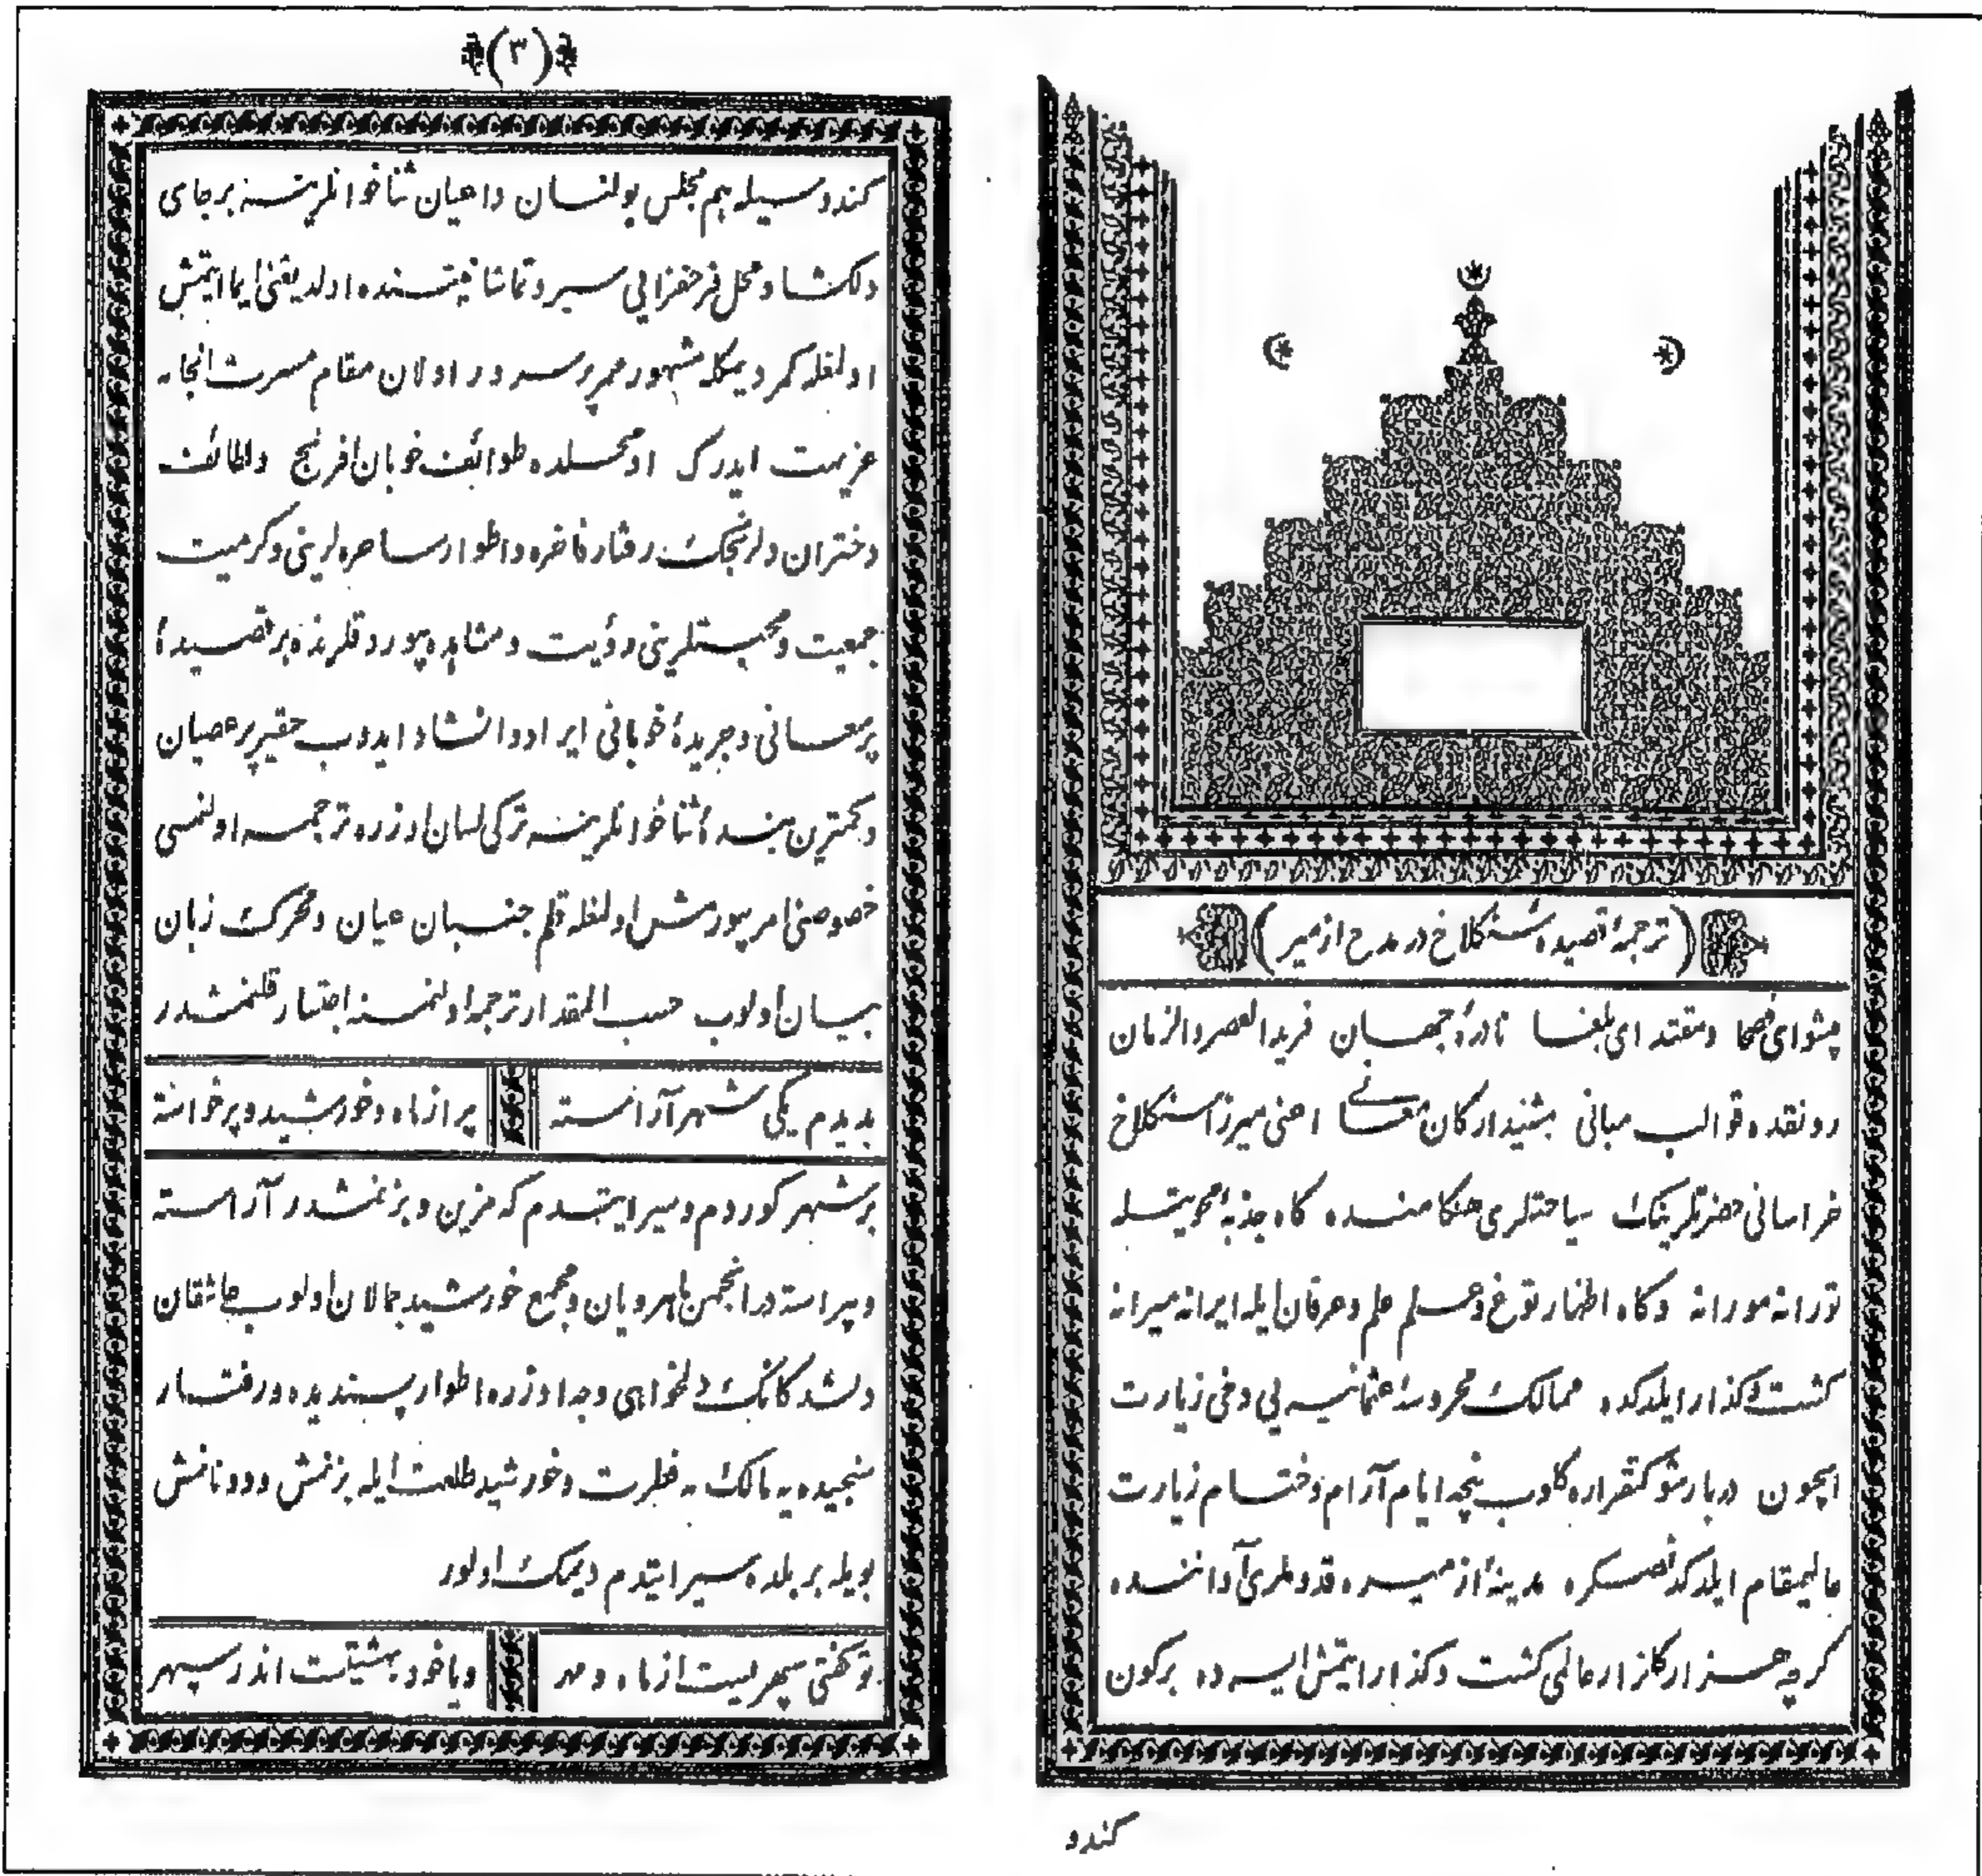 (ترجمهٔ قصیدهٔ سنکلاخ در مدح ازمیر)
پیشوای فصحا ومقتدای بلغا نادرهٔ جهان فرید العصر والزمان
رونقده قوالب مبانی مشید ارکان معانی اعنی میرزا سنکلاخ
خراسانی حضرتلرینک سیاحتلری هنکامنده کاه جذبهٔ محویتله
تورانه مورانه وکاه اظهار توغ وعلم علم وعرفان ایله ایرانه میرانه
کشت وکذار ایلدکده ممالک محروسهٔ عثمانیه یی دخی زیارت
ایچون دربار شوکتقراره کلوب نیچه ایام آرام وختام زیارت
عالیمقام ایلدکدنصکره مدینهٔ ازمیره قدوملری آواننده
کرچه هزار کلزار عالمی کشت وکذار ایتمش ایسه ده برکون
کندو
(۳)
کندوسیله هم مجلس بولنان داعیان ثناخوانلرینه برجای
دلکشا ومحل فرحفزایی سیر وتماشا نیتنده اولدیغنی ایما ایتمش
اولمغله کمر دیمکله مشهور ممر پرسرور اولان مقام مسرت انجامه
عزیمت ایدرک اومحلده طوائف خوبان افرنج ولطائف
دختران دلرنجک رفتار فاخره واطوار ساحره لرینی وکرمیت
جمعیت ومحبتلرینی رؤیت ومشاهده بیوردقلرنده برقصیدهٔ
پرمعانی وجریدهٔ خوبانی ایراد وانشاد ایدوب حقیر پرعصیان
وکمترین بندهٔ ثناخوانلرینه ترکی لسان اوزره ترجمه اولنمسی
خصوصنی امر بیورمش اولمغله قلم جنبان عیان ومحرک زبان
بیان اولوب حسب المقدار ترجمه اولنمسنه ابتدار قلنمشدر
بدیدم یکی شهر آراسته پر از ماه وخورشید وپرخواسته
برشهر کوردم وسیر ایتدم که مزین وبزنمشدر آراسته
وپیراسته در انجمن ماهرویان ومجمع خورشید جمالان اولوب عاشقان
دلشدکانک دلخواهی وجه اوزره اطوار پسندیده ورفتار
سنجیده یه مالک مه فطرت وخورشید طلعت ایله بزنمش ودونانمش
بویله بربلده سیر ایتدم دیمک اولور
توکفتی سپهریست از ماه ومهر ویاخود بهشتیست اندر سپهر